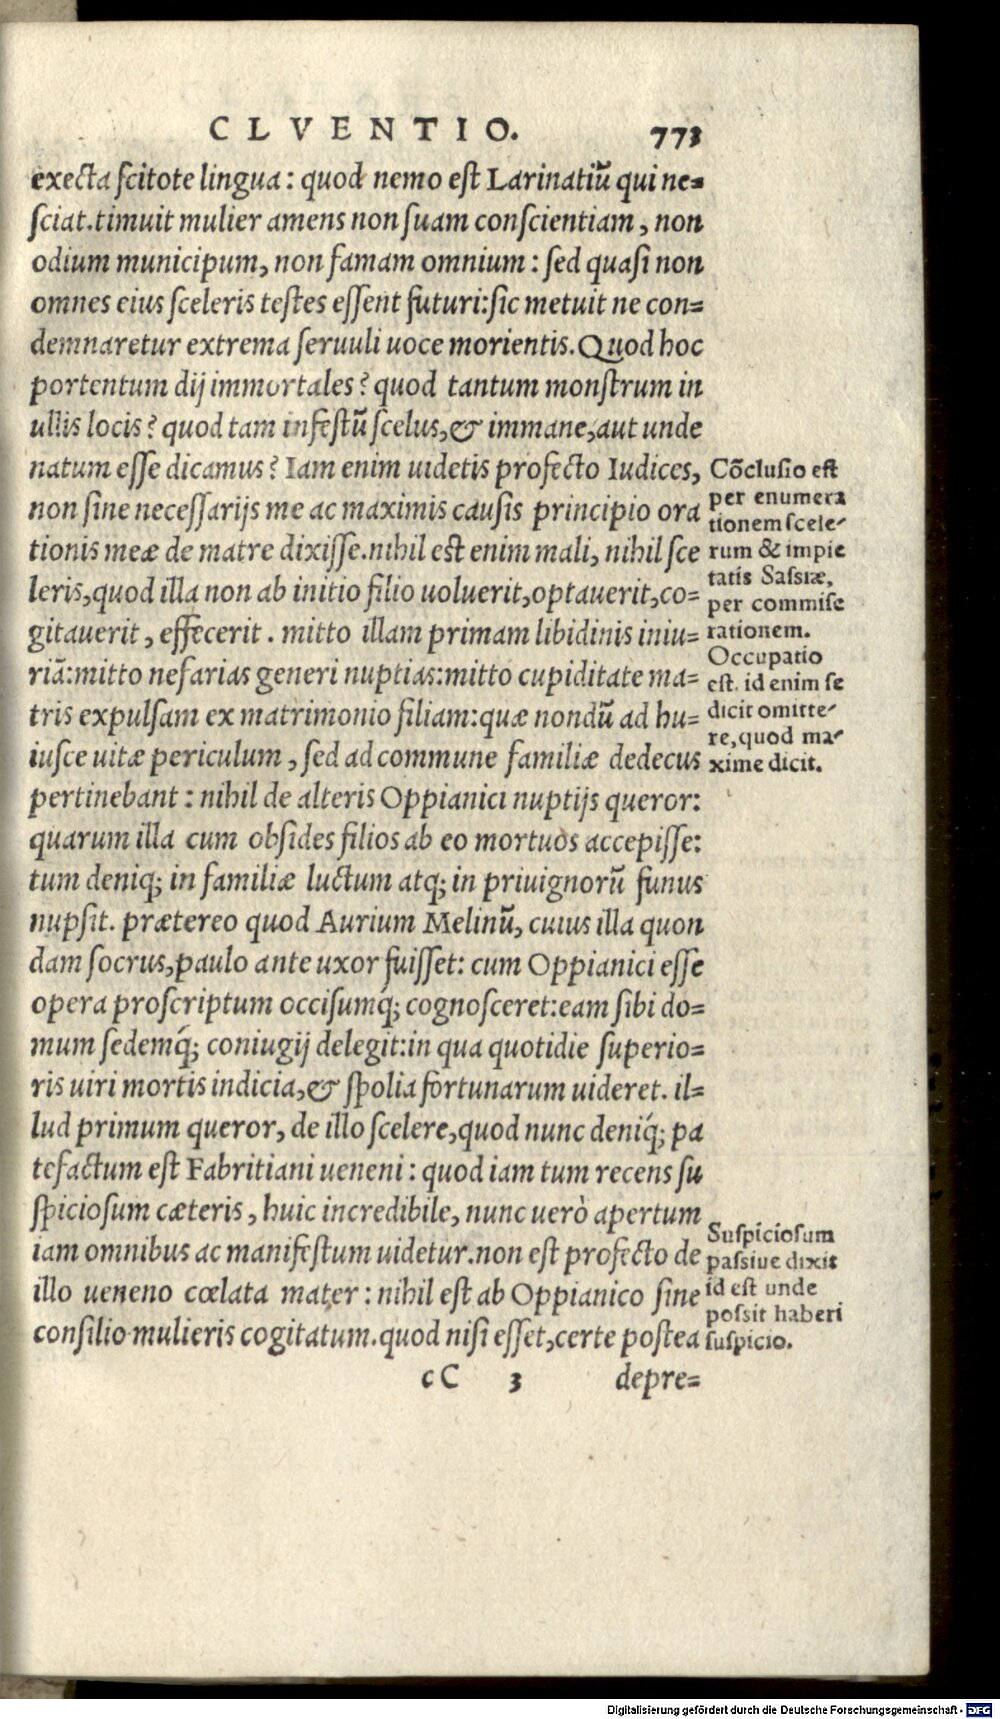 CLVENTIO. 773
execta scitote lingua: quod nemo est Larinatiũ qui ne=
sciat.timuit mulier amens non suam conscientiam, non
odium municipum, non famam omnium: sed quasi non
omnes eius sceleris testes essent futuri:sic metuit ne con=
demnaretur extrema seruuli uoce morientis.Quod hoc
portentum dij immortales? quod tantum monstrum in
ullis locis? quod tam infestũ scelus,& immane,aut unde
natum esse dicamus? Iam enim uidetis profecto Iudices,
non sine necessarijs me ac maximis causis principio ora
tionis meæ de matre dixisse.nihil est enim mali, nihil sce
leris,quod illa non ab initio filio uoluerit,optauerit,co=
gitauerit, effecerit. mitto illam primam libidinis iniu=
riã:mitto nefarias generi nuptias:mitto cupiditate ma=
tris expulsam ex matrimonio filiam:quæ nondũ ad hu=
iusce uitæ periculum, sed ad commune familiæ dedecus
pertinebant: nihil de alteris Oppianici nuptijs queror:
quarum illa cum obsides filios ab eo mortuos accepisse:
tum deniq; in familiæ luctum atq; in priuignorũ funus
nupsit. prætereo quod Aurium Melinũ, cuius illa quon
dam socrus,paulo ante uxor fuisset: cum Oppianici esse
opera proscriptum occisumq́; cognosceret:eam sibi do=
mum sedemq́; coniugij delegit:in qua quotidie superio=
ris uiri mortis indicia,& spolia fortunarum uideret. il=
lud primum queror, de illo scelere,quod nunc deniq́; pa
tefactum est Fabritiani ueneni: quod iam tum recens su
spiciosum cæteris, huic incredibile, nunc uerò apertum
iam omnibus ac manifestum uidetur.non est profecto de
illo ueneno cœlata mater: nihil est ab Oppianico sine
consilio mulieris cogitatum.quod nisi esset,certe postea
cC 3 depre=
Cõclusio est
per enumera
tionem scele-
rum & impie
tatis Sassiæ,
per commise
rationem.
Occupatio
est. id enim se
dicit omitte-
re,quod ma-
xime dicit.
Suspiciosum
passiue dixit
id est unde
possit haberi
suspicio.
Digitalisierung gefördert durch die Deutsche Forschungsgemeinschaft - DFG